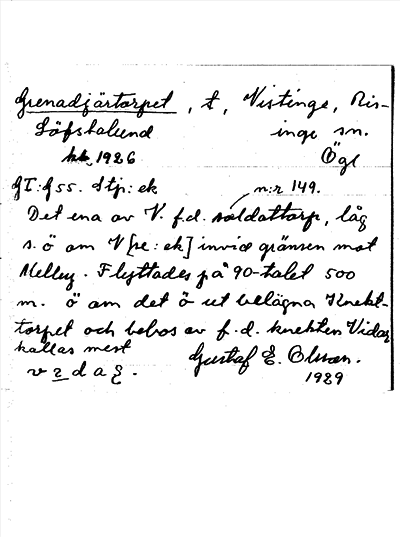 Grenadjärtorpet, t, Vistinge, Ris-
Löfstalund inge sn.
hk, 1926 Ögl
GT:Gss. Stp: ek n:r 149.
Det ena av V. f.d. soldattorp, låg
s.ö om V[re: ek] invid gränsen mot
Melby. Flyttades på 90-talet 500
m. ö om det ö ut belägna Knekt-
torpet och bebos av f.d. knekten Vidag
kallas mest Gustaf E. Olsson.
1929